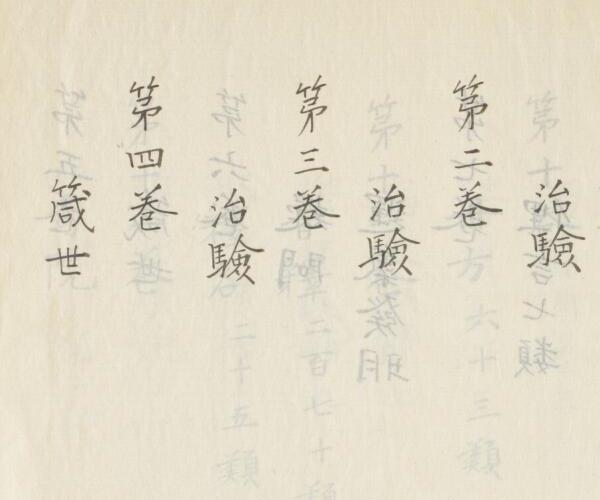 治驗
第二巻
治驗
第三巻
治驗
第四巻
箴世